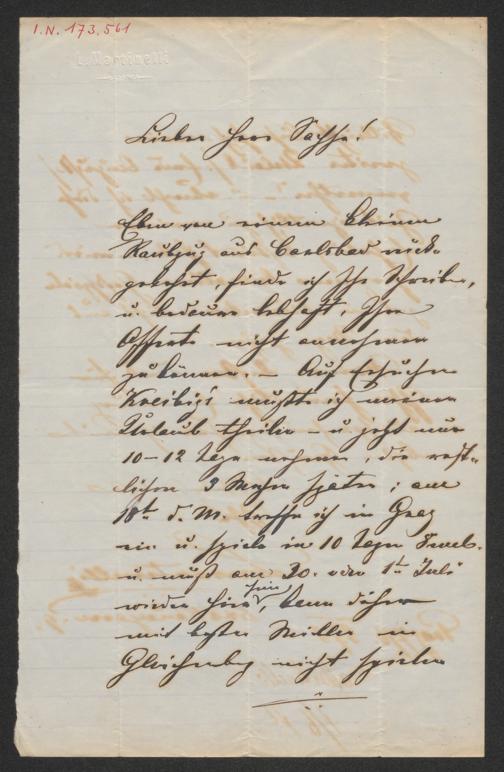 I.N. 173.561
L. Martinelli
Lieber Herr Sachse!
Eben von einem kleinen
Raubzug aus Carlsbad rück-
gekehrt, finde ich Ihr Schreiben,
u. bedaure lebhaft, Ihre
Offerte nicht annehmen
zu können. – Auf Ersuchen
Kreibig's mußte ich meinen
Urlaub theilen – u jetzt nur
10–12 Tage nehmen, die rest-
lichen 3 Wochen später; am
18t. d. M. treffe ich in Graz
ein u. spiele in 10 Tagen
u. muß am 30. oder 1ten Juli
wieder hier sein, kann daher
mit bestem Willen in
Gleichenberg nicht spielen